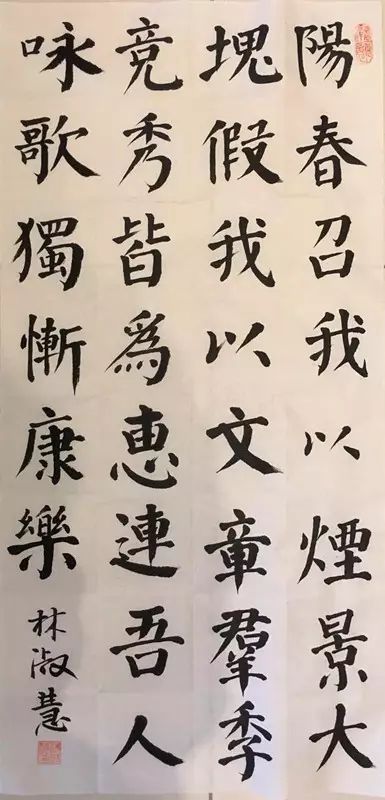 陽春召我以煙景大
塊假我以文章羣季
竟秀皆爲惠連吾人
咏歌獨慚康樂
林淑慧